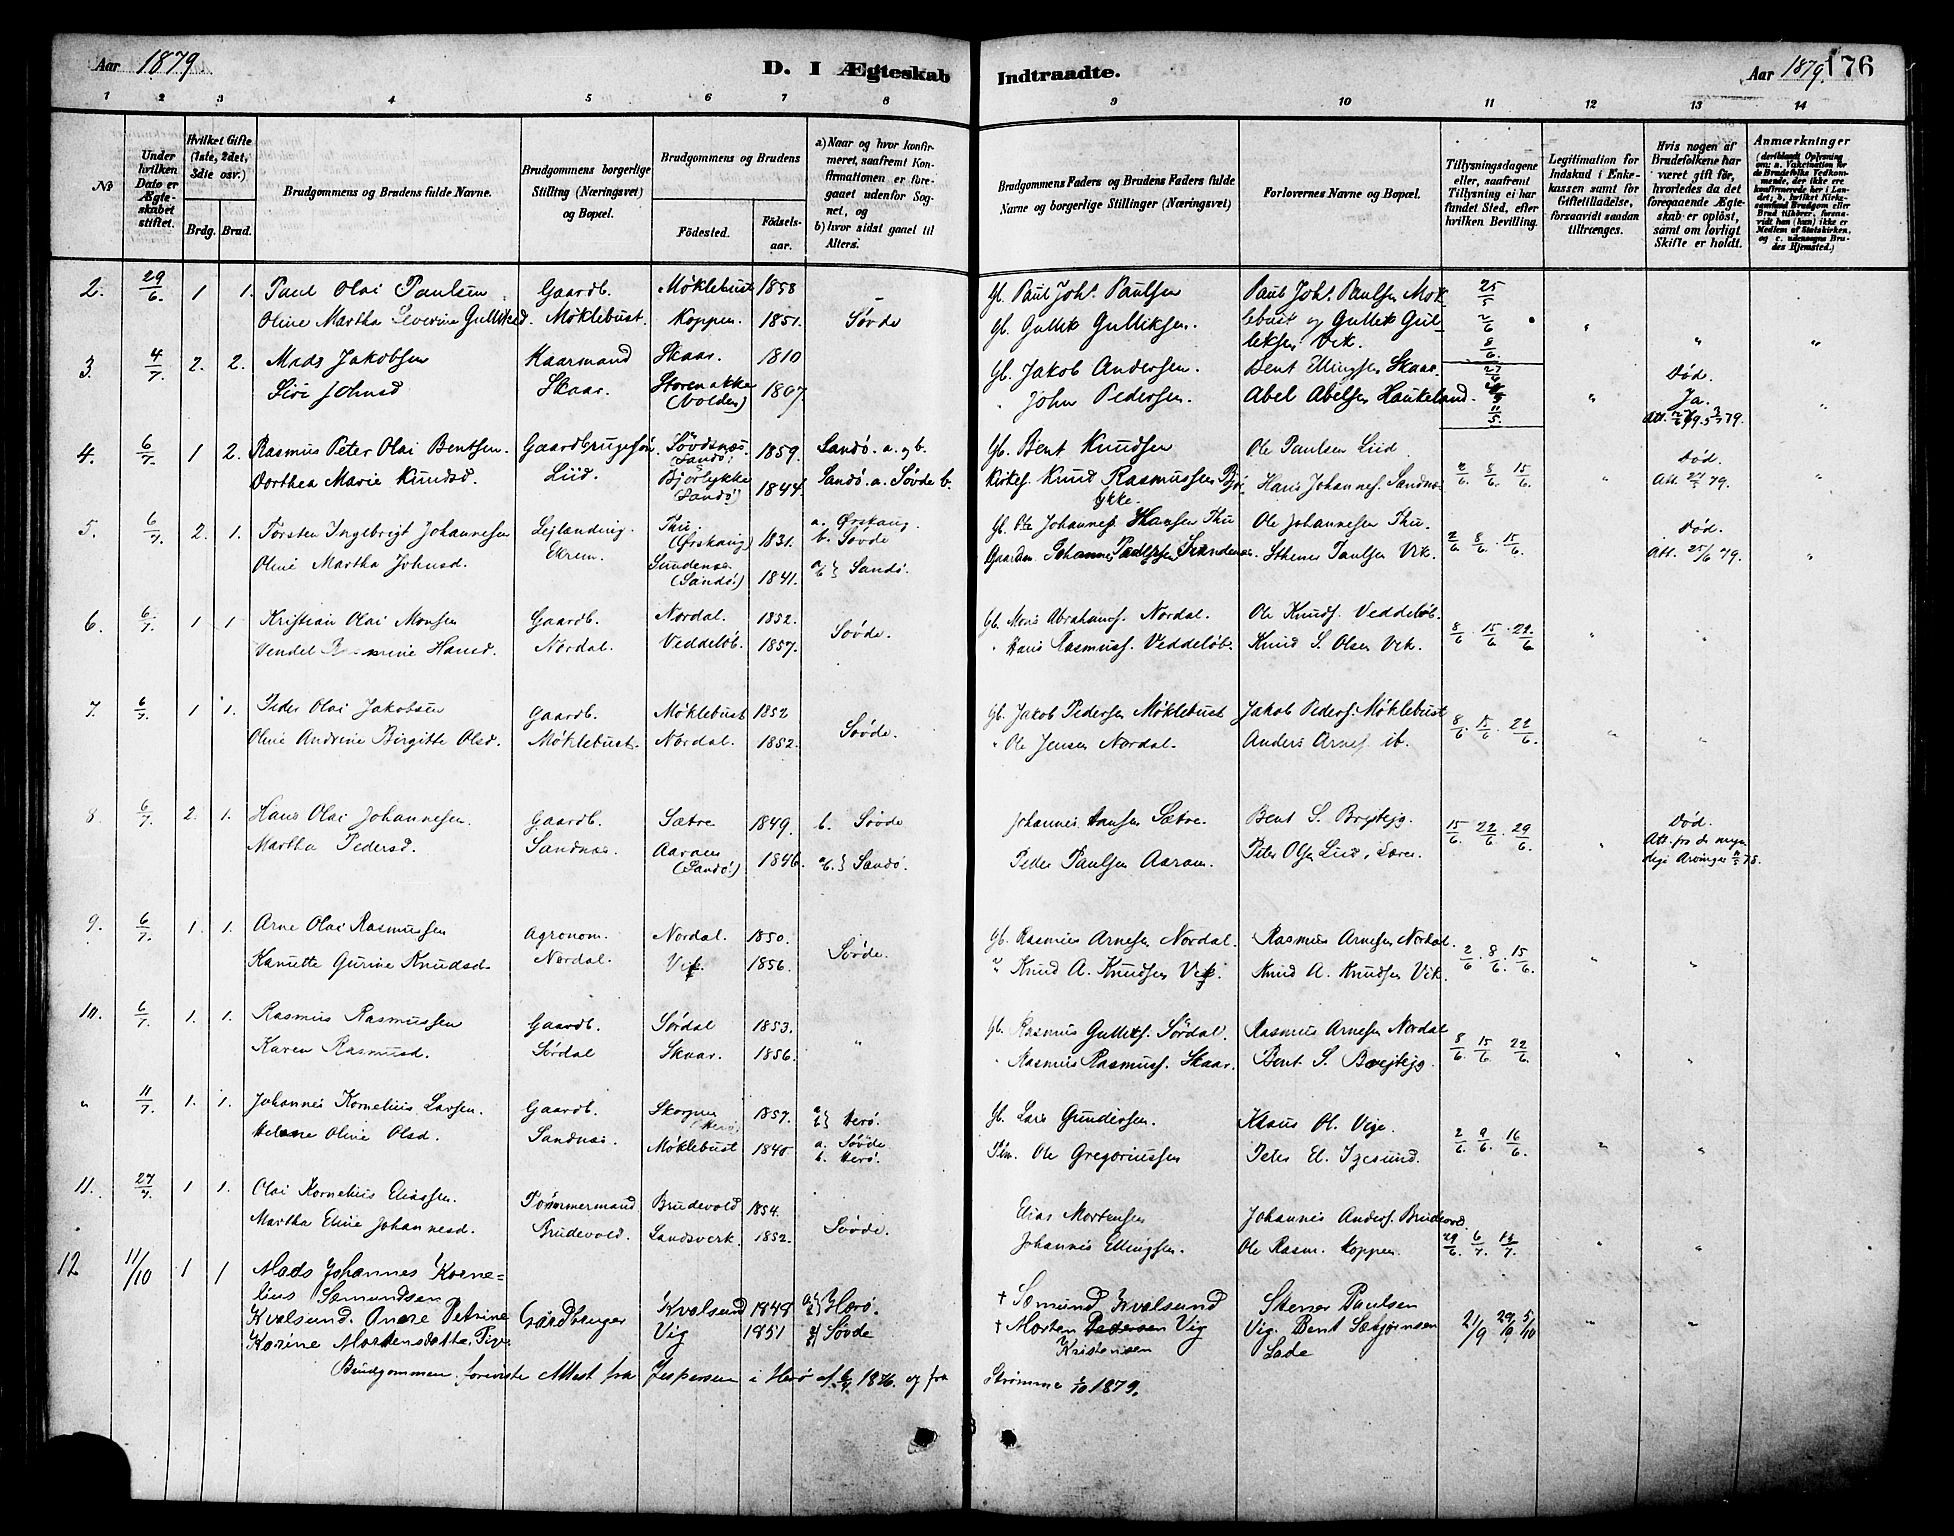 Aar 1879
D. I Ægteskab Indtraadte.
Aar 1879.
176
1 2 3 4 5 6 7 8 9 10 11 12 13 14
No
Under hvilken Dato er Ægteskabet stiftet.
Hvilket Gifte (1ste, 2det, 3die osv.)
Brdg. Brud.
Brudgommens og Brudens fulde Navne.
Brudgommens borgerlige Stilling (Næringsvei) og Bopæl.
Brudgommens og Brudens
Fødested.
Fødselsaar.
a) Naar og hvor konfirmeret, saafremt Konfirmationen er foregaaet udenfor Sognet, og
b) hvor sidst gaaet til Alters.
Brudgommens Faders og Brudens Faders fulde Navne og borgerlige Stillinger (Næringsvei)
Forlovernes Navne og Bopæl.
Tillysningsdagene eller, saafremt Tillysning ei har fundet Sted, efter hvilken Bevilling.
Legitimation for Indskud i Enkekassen samt for Giftetilladelse, forsaavidt saadan tiltrænges.
Hvis nogen af Brudefolkene har været gift før, hvorledes da det foregaaende Ægteskab er opløst, samt om lovligt Skifte er holdt.
Anmærkninger
2. 29/6. 1 1. Paul Olai Paulsen Gaardb. Møklebust 1858 - Gb. Paul Joh. Paulsen Paul Joh. Paulsen Mök- 25/5
Oline Martha Severine Gulliksd. Møklebust. Koppen. 1851. Søvde Gb. Gullik Gulliksen. lebust og Gullik Gul- 2/6 "
leksen Vik. 8/6. " "
3. 4/7. 2. 2. Mads Jakobsen Kaarmand Skaar. 1810 Gb. Jakob Andersen. Bent Ellingsen Skaar. Død.
Siri Johnsd Skaar. Storenakke (Volden) 1807. " John Pedersen. Abel Abelsen Haukeland. " Ja. "
4. 6/7. 1 2. Rasmus Peter Olai Bentsen. Gaardbrugersøn. Søvdsnæs. (Sandö.) 1859. Sandö. a. og b. Gb. Bent Knudsen Ole Paulsen Liid. Død.
Dorthea Marie Knudsd. Liid. Bjørlykke (Sandö) 1844. Sandö. a. Søvde b. Kirkes. Knud Rasmussen Bjør- Hans Johannes. Sandnæs 2/6 8/6 15/6. " "
lykke.
5. 6/7. 2. 1. Torsten Ingebrigt Johannesen Lejlænding. Thu. (Ørskaug) 1831. a. Ørskaug. b. Søvde Gb. Johannes Hansen Thu Ole Johannesen Thu. Død.
Oline Martha Johnsd. Ekrem. (Sandö.) 1841. a/b} Sandö. Sthener Paulsen Vik. 2/6 8/6. 15/6. Att. 25/6 79. "
6. 6/7. 1 1 Kristian Olai Monsen Gaardb. Nordal. 1852. Søvde. Gb. Mons Abrahams. Nordal. Ole Knuds. Veddeløb. 8/6. 15/6. 22/6.
Hansd. Nordal. Veddeløb. 1857. " Hans Rasmuss. Veddeløb. Knud S. Olsen Vik. " "
7. 6/7. 1 1. Peder Olai Jakobsen Gaardb. Møklebust 1852 Søvde. Gb. Jakob Pedersen Møklebust Jakob Peders. Møklebust 8/6. 15/6. 22/6.
Oline Andrine Birgitte Olsd. Møklebust. Nordal. 1852. " Ole Jensen Nordal. Anders Arnes. ib. " "
8. 6/7. 2. 1. Hans Olai Johannesen. Gaardb. Sætre 1849. b. Søvde Johannes Hansen Sætre. Bent S. 15/6. 22/6. 29/6. Død.
Martha Pedersd. Sandnæs. Aaram (Sandö.) 1846. a/b.} Sandö. Peder Paulsen Aaram. Peter Olsen Liid, " Att. fra de myn-
dige Arvinger
9. 6/7. 1. 1. Arne Olai Rasmussen Agronom. Nordal. 1850. Søvde. Gb. Rasmus Arnesen Nordal. Rasmus Arnesen Nordal. 2/6. 8/6. 15/6.
Kanutte Gurine Knudsd. Nordal. Vik. 1856. " Knud A. Knudsen Vik. Knud A. Knudsen Vik. " "
10. 6/7. 1. 1. Rasmus Rasmussen Gaardb. Sørdal 1853. Gb. Rasmus Gulliks. Sørdal. Rasmus Arnesen Nordal 8/6. 15/6 22/6.
Karen Rasmusd. Sørdal Skaar. 1856. " " Rasmus Rasmuss. Skaar. Bent S. " "
" 11/7. 1. 1. Johannes Kornelius Larsen. Gaardb. Skorpen 1857. a/b} Herö. Gb. Lars Gundersen. Klaus Ol. Vige. 2/6. 9/6. 16/6.
Helene Oline Olsd. Sandnæs. Møklebust 1840. a. Søvde b. Herö. Ole Gregoriussen Peter E. Igesund. " "
11. 27/7. 1 1. Olai Kornelius Eliassen. Tømmermand Brudevold 1854. Elias Mortensen Johannes Anders. Brudevold.
Martha Eline Johannesd. Brudevold. Landsverk. 1852. Søvde. Johannes Ellingsen. Ole Rasm. Koppen. 29/6. 6/7. 13/7. " "
12 11/10 1 1 Mads Johannes Korne-
lius Sæmundsen
Kvalsund. Anne Petrine Gårdbruger Kvalsund 1848 a/b} Herø. † Sæmund Kvalsund Stener Paulsen 21/9 5/10
Karine Mortensdatter Vig 1851 Søvde † Morten Pedersen Vig Vig. Bent Sæbjørnsen " "
Kristensen Lade
Brudgommen foreviste Attest fra Jespersen i Herø af 1876. og fra Strømme 1879.